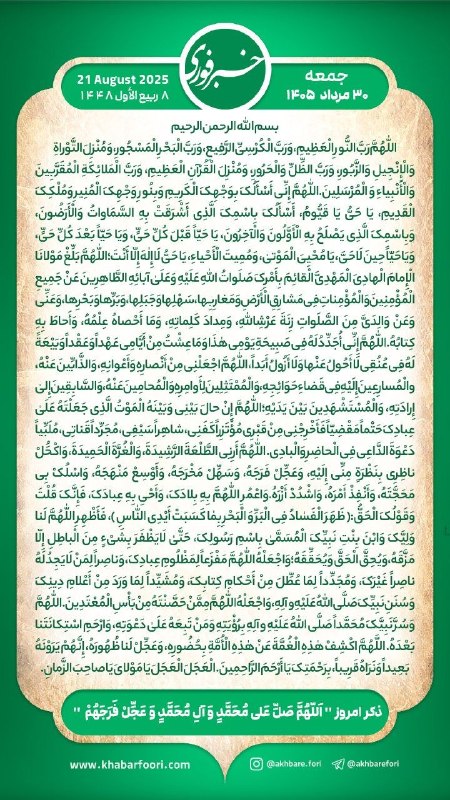 21 August 2025
۸ ربیع الأول ۱۴۴۸
خبرفوری
جمعه
۳۰ مرداد ۱۴۰۵
بسم الله الرحمن الرحیم
اللّهُمَّ رَبَّ النُّورِ الْعَظِيمِ، وَرَبَّ الْكُرْسِيِّ الرَّفِيعِ، وَرَبَّ الْبَحْرِ الْمَسْجُورِ، وَمُنْزِلَ التَّوْراةِ
وَالْإِنْجِيلِ وَالزَّبُورِ، وَرَبَّ الظِّلِّ وَالْحَرُورِ، وَمُنْزِلَ الْقُرْآنِ الْعَظِيمِ، وَرَبَّ الْمَلائِكَةِ الْمُقَرَّبِينَ
وَالْأَنْبِياءِ وَالْمُرْسَلِينَ. اللّٰهُمَّ إِنِّى أَسْأَلُكَ بِوَجْهِكَ الْكَرِيمِ وَبِنُورِ وَجْهِكَ الْمُنِيرِ وَمُلْكِكَ
الْقَدِيمِ، يَا حَىُّ يَا قَيُّومُ، أَسْأَلُكَ بِاسْمِكَ الَّذِى أَشْرَقَتْ بِهِ السَّمَاوَاتُ وَالْأَرَضُونَ،
وَبِاسْمِكَ الَّذِى يَصْلَحُ بِهِ الْأَوَّلُونَ وَالْآخِرُونَ، يَا حَيّاً قَبْلَ كُلِّ حَىٍّ، وَيَا حَيّاً بَعْدَ كُلِّ حَىٍّ،
وَيَا حَيّاً حِينَ لَا حَىَّ، يَا مُحْيِىَ الْمَوْتىٰ، وَمُمِيتَ الْأَحْياءِ، يَا حَىُّ لَا إِلٰهَ إِلّا أَنْتَ؛ اللّٰهُمَّ بَلِّغْ مَوْلانَا
الْإِمامَ الْهادِىَ الْمَهْدِىَّ الْقائِمَ بِأَمْرِكَ صَلَواتُ اللّٰهِ عَلَيْهِ وَعَلَىٰ آبائِهِ الطَّاهِرِينَ عَنْ جَمِيعِ
الْمُؤْمِنِينَ وَالْمُؤْمِناتِ فِى مَشارِقِ الْأَرْضِ وَمَغارِبِها، سَهْلِها وَجَبَلِها، وَبَرِّها وَبَحْرِها، وَعَنِّى
وَعَنْ وَالِدَىَّ مِنَ الصَّلَواتِ زِنَةَ عَرْشِ اللّٰهِ، وَمِدادَ كَلِماتِهِ، وَمَا أَحْصاهُ عِلْمُهُ، وَأَحاطَ بِهِ
كِتابُهُ. اللّٰهُمَّ إِنِّى أُجَدِّدُ لَهُ فِى صَبِيحَةِ يَوْمِى هٰذَا وَمَا عِشْتُ مِنْ أَيَّامِى عَهْداً وَعَقْداً وَبَيْعَةً
لَهُ فِى عُنُقِى لَاأَحُولُ عَنْها وَلَا أَزُولُ أَبَداً. اللّٰهُمَّ اجْعَلْنِى مِنْ أَنْصارِهِ وَأَعْوانِهِ، وَالذَّابِّينَ عَنْهُ،
وَالْمُسارِعِينَ إِلَيْهِ فِى قَضاءِ حَوَائِجِهِ، وَالْمُمْتَثِلِينَ لِأَوامِرِهِ وَالْمُحامِينَ عَنْهُ، وَالسَّابِقِينَ إِلىٰ
إِرادَتِهِ، وَالْمُسْتَشْهَدِينَ بَيْنَ يَدَيْهِ؛ اللّٰهُمَّ إِنْ حالَ بَيْنِى وَبَيْنَهُ الْمَوْتُ الَّذِى جَعَلْتَهُ عَلَىٰ
عِبادِكَ حَتْماً مَقْضِيّاً فَأَخْرِجْنِى مِنْ قَبْرِى مُؤْتَزِراً كَفَنِى، شاهِراً سَيْفِى، مُجَرِّداً قَناتِى، مُلَبِّياً
دَعْوَةَ الدَّاعِى فِى الْحاضِرِ وَالْبادِى. اللّٰهُمَّ أَرِنِى الطَّلْعَةَ الرَّشِيدَةَ، وَالْغُرَّةَ الْحَمِيدَةَ، وَاكْحُلْ
ناظِرِى بِنَظْرَةٍ مِنِّى إِلَيْهِ، وَعَجِّلْ فَرَجَهُ، وَسَهِّلْ مَخْرَجَهُ، وَأَوْسِعْ مَنْهَجَهُ، وَاسْلُكْ بِى
مَحَجَّتَهُ، وَأَنْفِذْ أَمْرَهُ، وَاشْدُدْ أَزْرَهُ. وَاعْمُرِ اللّٰهُمَّ بِهِ بِلادَكَ، وَأَحْىِ بِهِ عِبادَكَ، فَإِنَّكَ قُلْتَ
وَقَوْلُكَ الْحَقُّ: ﴿ظَهَرَ الْفَسادُ فِى الْبَرِّ وَالْبَحْرِ بِما كَسَبَتْ أَيْدِى النَّاسِ﴾، فَأَظْهِرِ اللّٰهُمَّ لَنا
وَلِيَّكَ وَابْنَ بِنْتِ نَبِيِّكَ الْمُسَمَّىٰ بِاسْمِ رَسُولِكَ، حَتَّىٰ لَا يَظْفَرَ بِشَىْءٍ مِنَ الْباطِلِ إِلّا
مَزَّقَهُ، وَيُحِقَّ الْحَقَّ وَيُحَقِّقَهُ؛ وَاجْعَلْهُ اللّٰهُمَّ مَفْزَعاً لِمَظْلُومِ عِبادِكَ، وَناصِراً لِمَنْ لَايَجِدُ لَهُ
ناصِراً غَيْرَكَ، وَمُجَدِّداً لِمَا عُطِّلَ مِنْ أَحْكامِ كِتابِكَ، وَمُشَيِّداً لِمَا وَرَدَ مِنْ أَعْلامِ دِينِكَ
وَسُنَنِ نَبِيِّكَ صَلَّى اللّٰهُ عَلَيْهِ وَآلِهِ، وَاجْعَلْهُ اللّٰهُمَّ مِمَّنْ حَصَّنْتَهُ مِنْ بَأْسِ الْمُعْتَدِينَ. اللّٰهُمَّ
وَسُرَّ نَبِيَّكَ مُحَمَّداً صَلَّى اللّٰهُ عَلَيْهِ وَآلِهِ بِرُؤْيَتِهِ وَمَنْ تَبِعَهُ عَلَىٰ دَعْوَتِهِ، وَارْحَمِ اسْتِكانَتَنا
بَعْدَهُ. اللّٰهُمَّ اكْشِفْ هٰذِهِ الْغُمَّةَ عَنْ هٰذِهِ الْأُمَّةِ بِحُضُورِهِ، وَعَجِّلْ لَنا ظُهُورَهُ، إِنَّهُمْ يَرَوْنَهُ
بَعِيداً وَنَرَاهُ قَرِيباً، بِرَحْمَتِكَ يَا أَرْحَمَ الرَّاحِمِينَ. الْعَجَلَ الْعَجَلَ يَا مَوْلاىَ يَا صاحِبَ الزَّمانِ.
ذکر امروز " اَللّهُمَّ صَلِّ عَلی مُحَمَّدٍ وَ آلِ مُحَمَّدٍ وَ عَجِّلْ فَرَجَهُمْ "
www.khabarfoori.com @akhbare.fori @akhbarefori